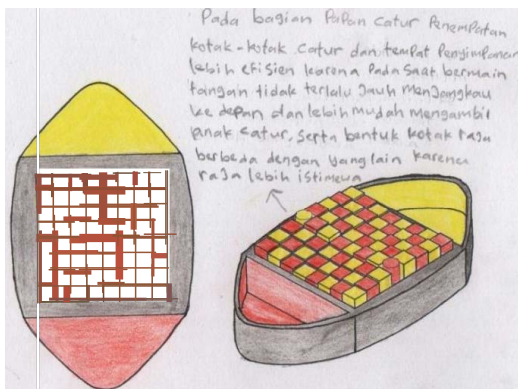 Pada bagian Papan Catur Penempatan
kotak-kotak catur dan tempat Penyimpanan
lebih efisien karena Pada saat bermain
tangan tidak terlalu jauh menjangkau
ke depan dan lebih mudah mengambil
anak catur, serta bentuk kotak raja
berbeda dengan yang lain karena
raja lebih istimewa